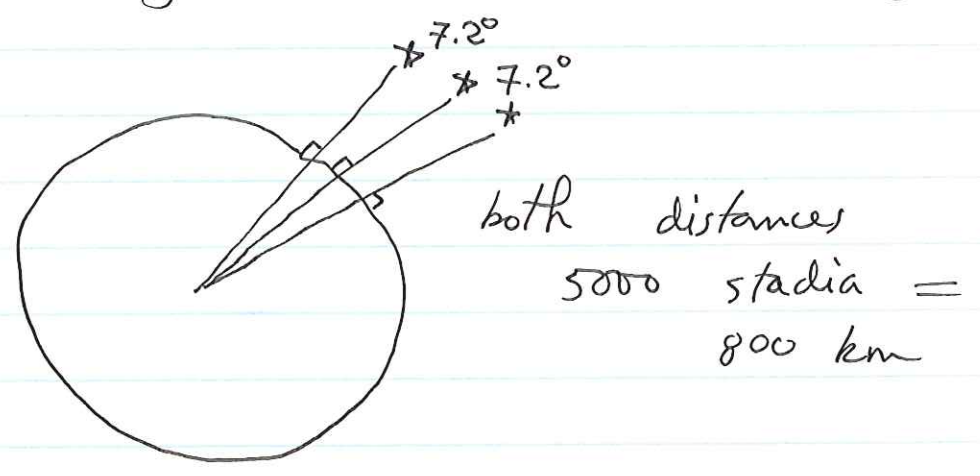 7.2°
7.2°
both distances
5000 stadia =
800 km